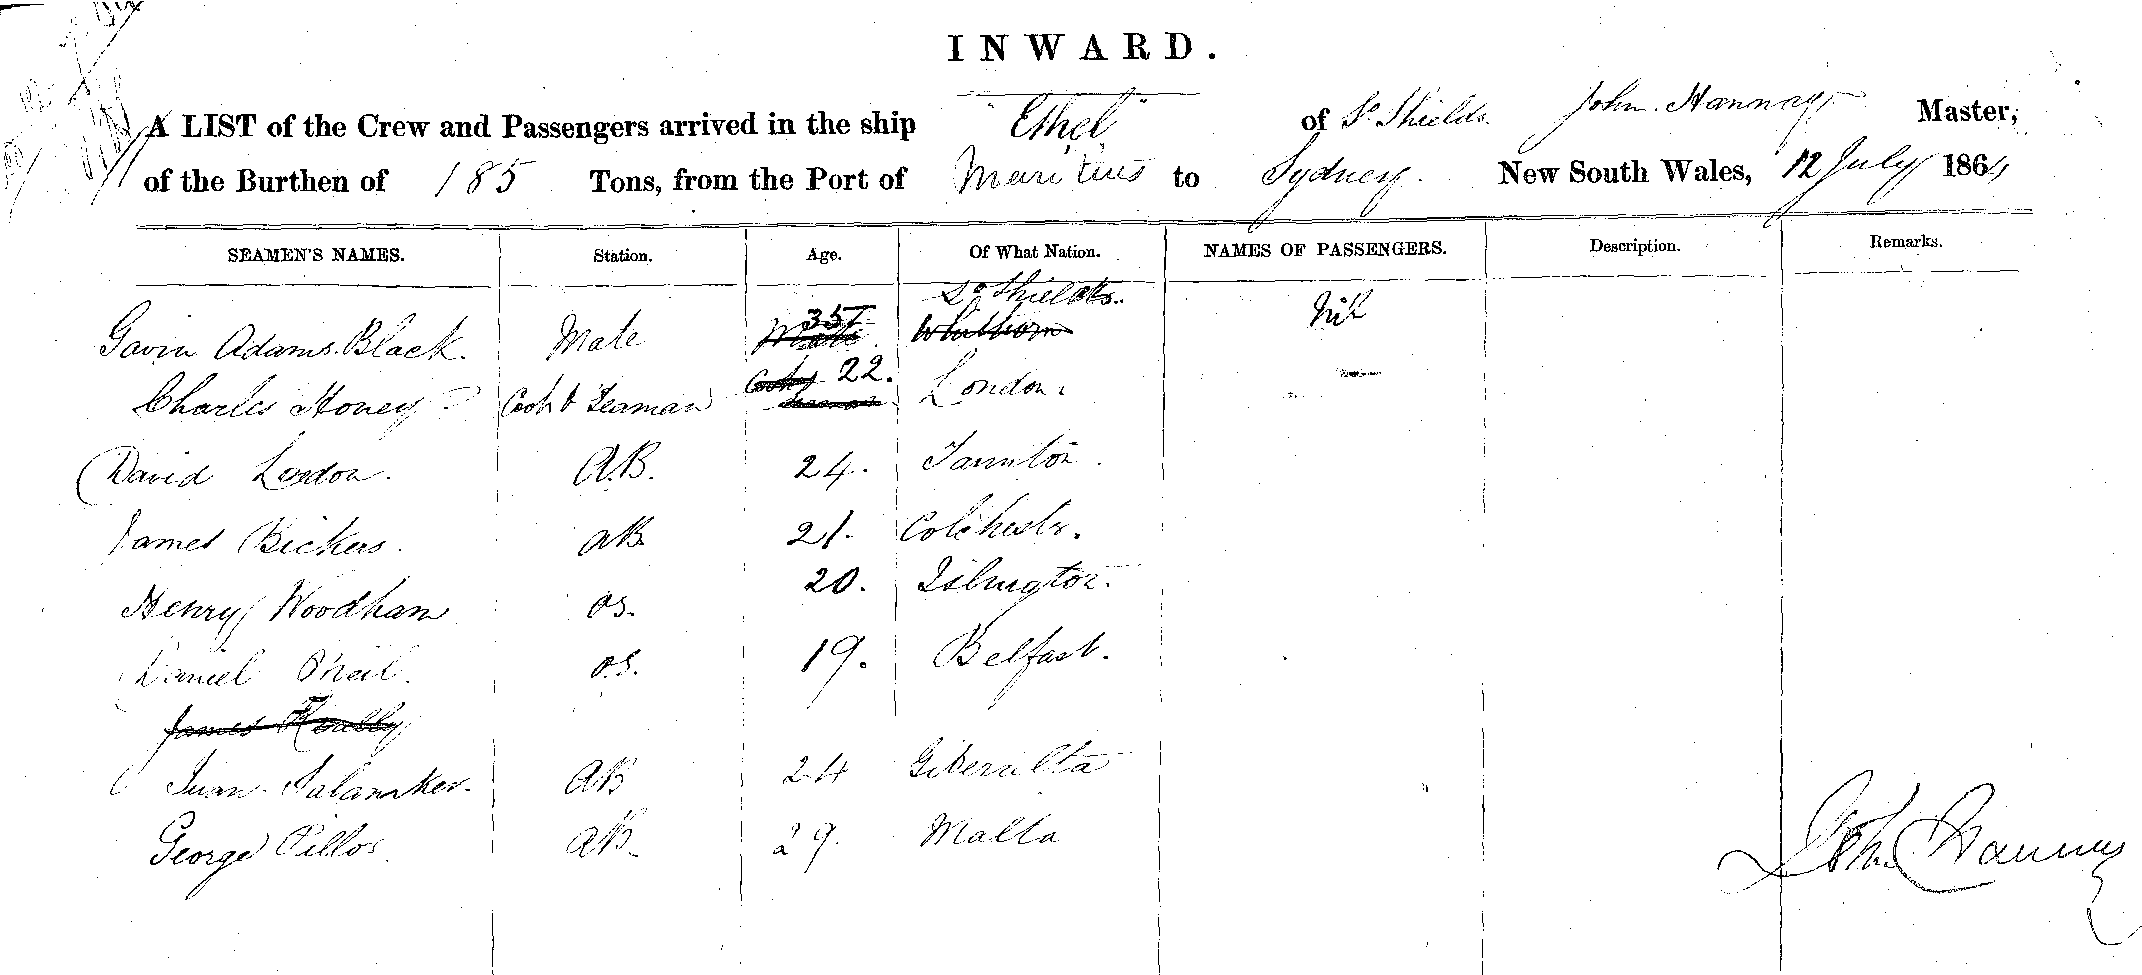 INWARD.
A LIST of the Crew and Passengers arrived in the ship "Ethel" of So Shields. John Hannay Master,
of the Burthen of 185 Tons, from the Port of Mauritius to Sydney. New South Wales, 12 July 1864
SEAMEN'S NAMES. Station. Age. Of What Nation. NAMES OF PASSENGERS. Description. Remarks.
So Shields.
Gavin Adams Black. Mate 35 Whithorn Nil
Charles Honey Cook & Seaman 22. London.
David London. A.B. 24. Taunton.
James Bickers. AB 21. Colchestr.
Henry Woodham OS. 20. Islington.
Daniel ONeil. O.S. 19. Belfast.
James
Juan AB 24 Giberalta
George Pillos. AB. 29. Malta
John Hannay